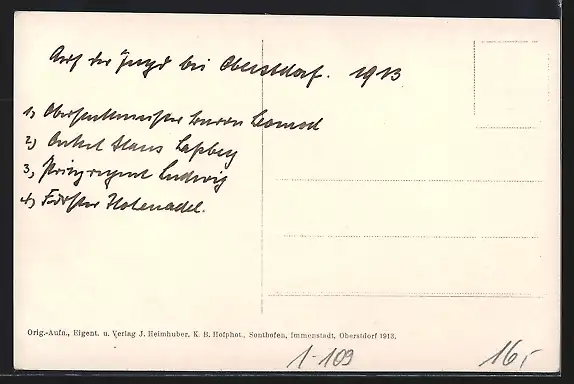 Auf der Jagd bei Oberstdorf. 1913
1) Oberstallmeister Baron Leonrod
2) Onkel Hans Laßberg
3) Prinzregent Ludwig
4) Förster Hohenadel.
Orig.-Aufn., Eigent. u. Verlag J. Heimhuber, K. B. Hofphot., Sonthofen, Immenstadt, Oberstdorf 1913.
1-109
16,-